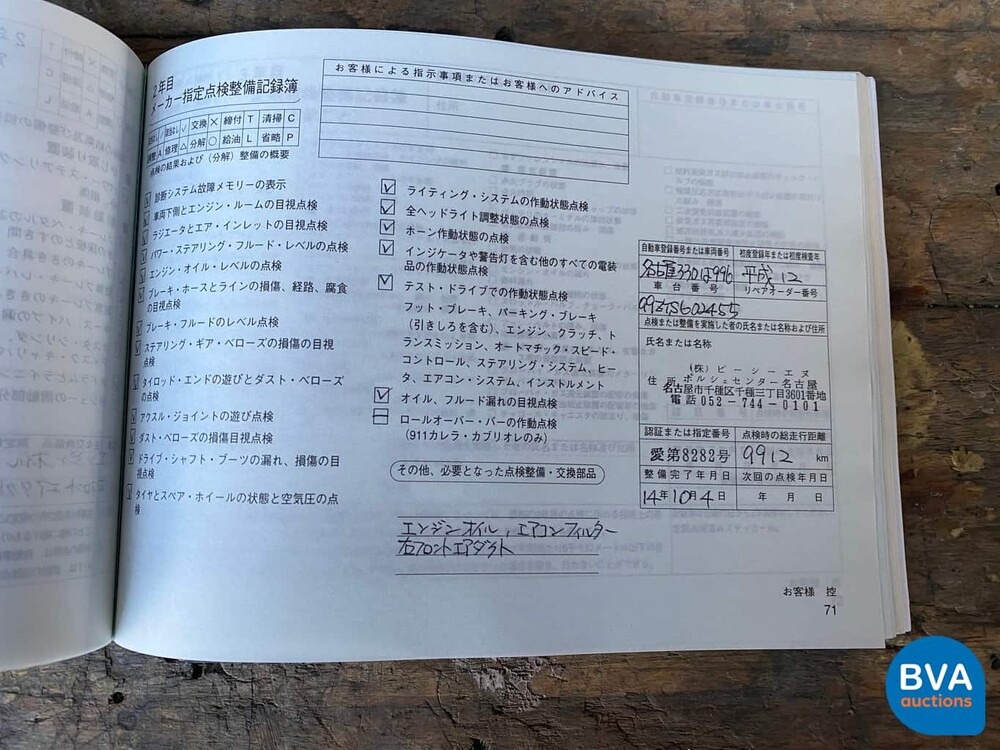 2年目
メーカー指定点検整備記録簿
交換 × 締付 T 清掃 C
A 修理 △ 分解 ○ 給油 L 省略 P
点検の結果および(分解)整備の概要
診断システム故障メモリーの表示
車両下側とエンジン・ルームの目視点検
ラジエータとエア・インレットの目視点検
パワー・ステアリング・フルード・レベルの点検
エンジン・オイル・レベルの点検
ブレーキ・ホースとラインの損傷、経路、腐食
の目視点検
ブレーキ・フルードのレベル点検
ステアリング・ギア・ベローズの損傷の目視
点検
タイロッド・エンドの遊びとダスト・ベローズ
の点検
アクスル・ジョイントの遊び点検
ダスト・ベローズの損傷目視点検
ドライブ・シャフト・ブーツの漏れ、損傷の目
視点検
タイヤとスペア・ホイールの状態と空気圧の点
検
お客様による指示事項またはお客様へのアドバイス
ライティング・システムの作動状態点検
全ヘッドライト調整状態の点検
ホーン作動状態の点検
インジケータや警告灯を含む他のすべての電装
品の作動状態点検
テスト・ドライブでの作動状態点検
フット・ブレーキ、パーキング・ブレーキ
(引きしろを含む)、エンジン、クラッチ、ト
ランスミッション、オートマチック・スピード・
コントロール、ステアリング・システム、ヒー
タ、エアコン・システム、インストルメント
オイル、フルード漏れの目視点検
ロールオーバー・バーの作動点検
(911カレラ・カブリオレのみ)
その他、必要となった点検整備・交換部品
エンジンオイル, エアコンフィルター
右フロントエアダクト
自動車登録番号または車両番号 初度登録年または初度検査年
名古屋330は996 平成12
車台番号 リペアオーダー番号
99ZYS602455
点検または整備を実施した者の氏名または名称および住所
氏名または名称
(株)ピーシーエヌ
住所 ポルシェセンター名古屋
名古屋市千種区千種三丁目3601番地
電話 052-744-0101
認証または指定番号 点検時の総走行距離
愛第8282号 9912 km
整備完了年月日 次回の点検年月日
14年10月4日 年 月 日
お客様 控
71
BVA
auctions